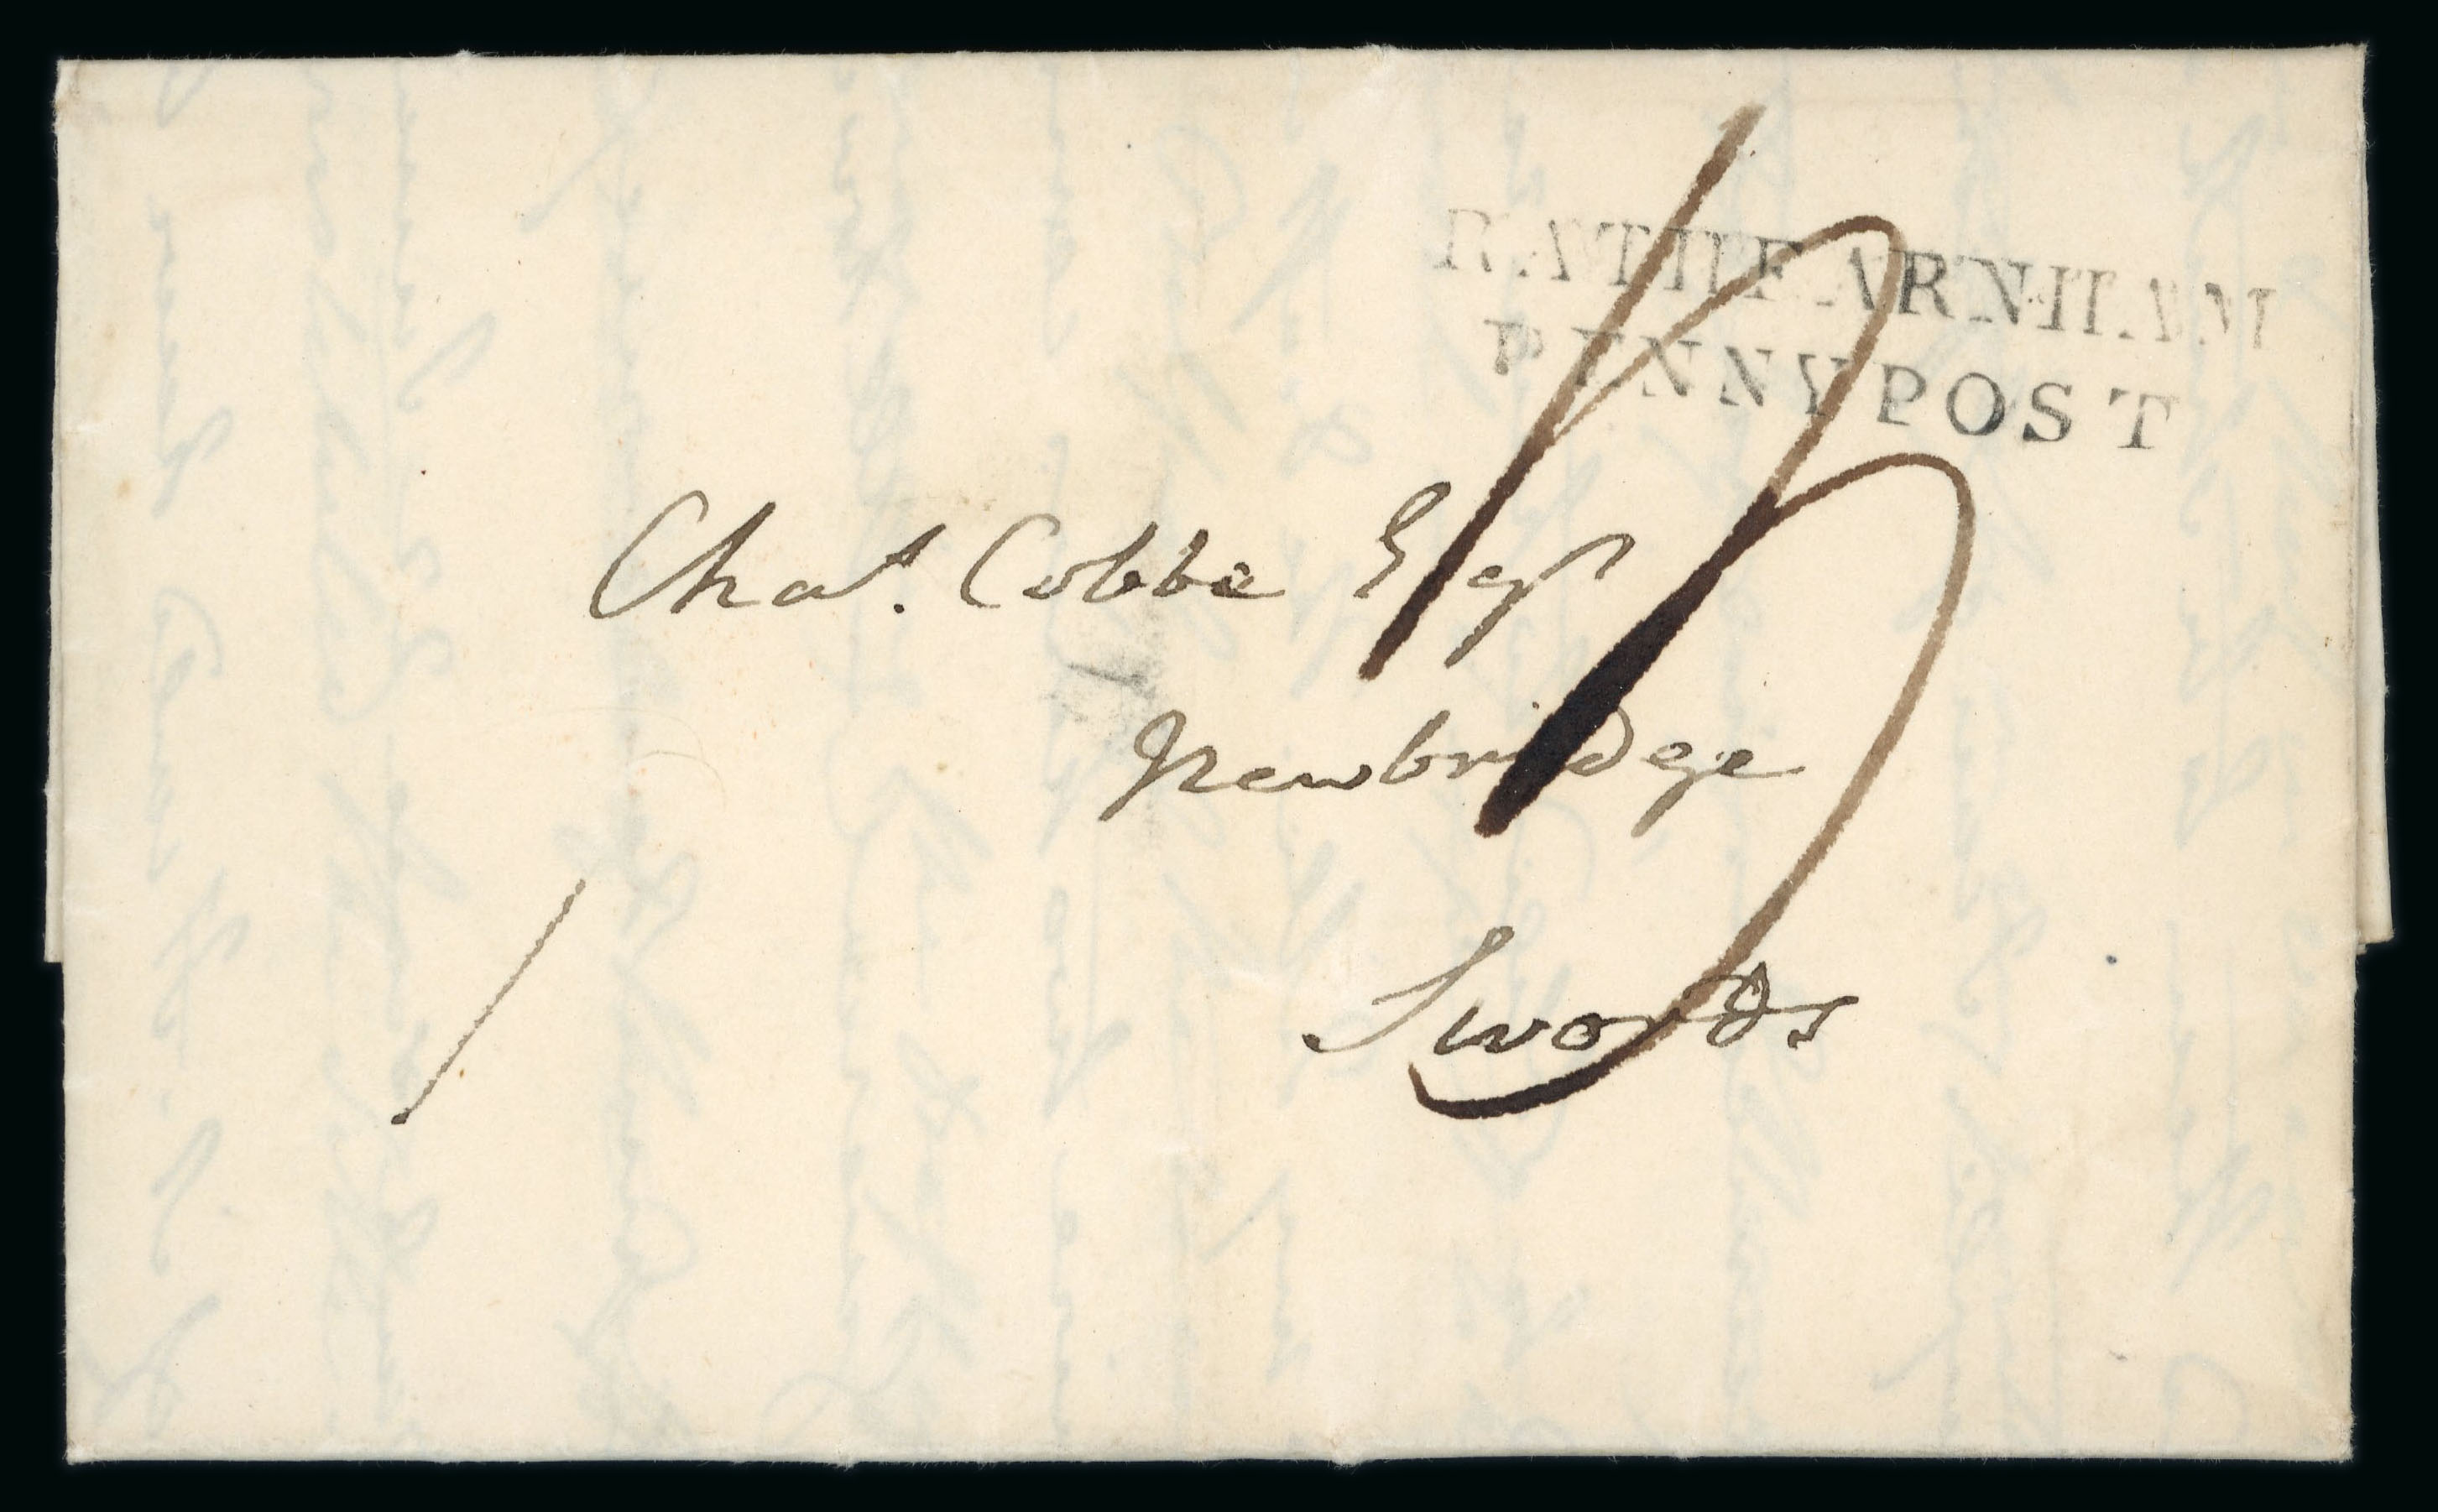 RATHFARNHAM
PENNY POST
Chas. Cobbe Esqr
Newbridge
Swords